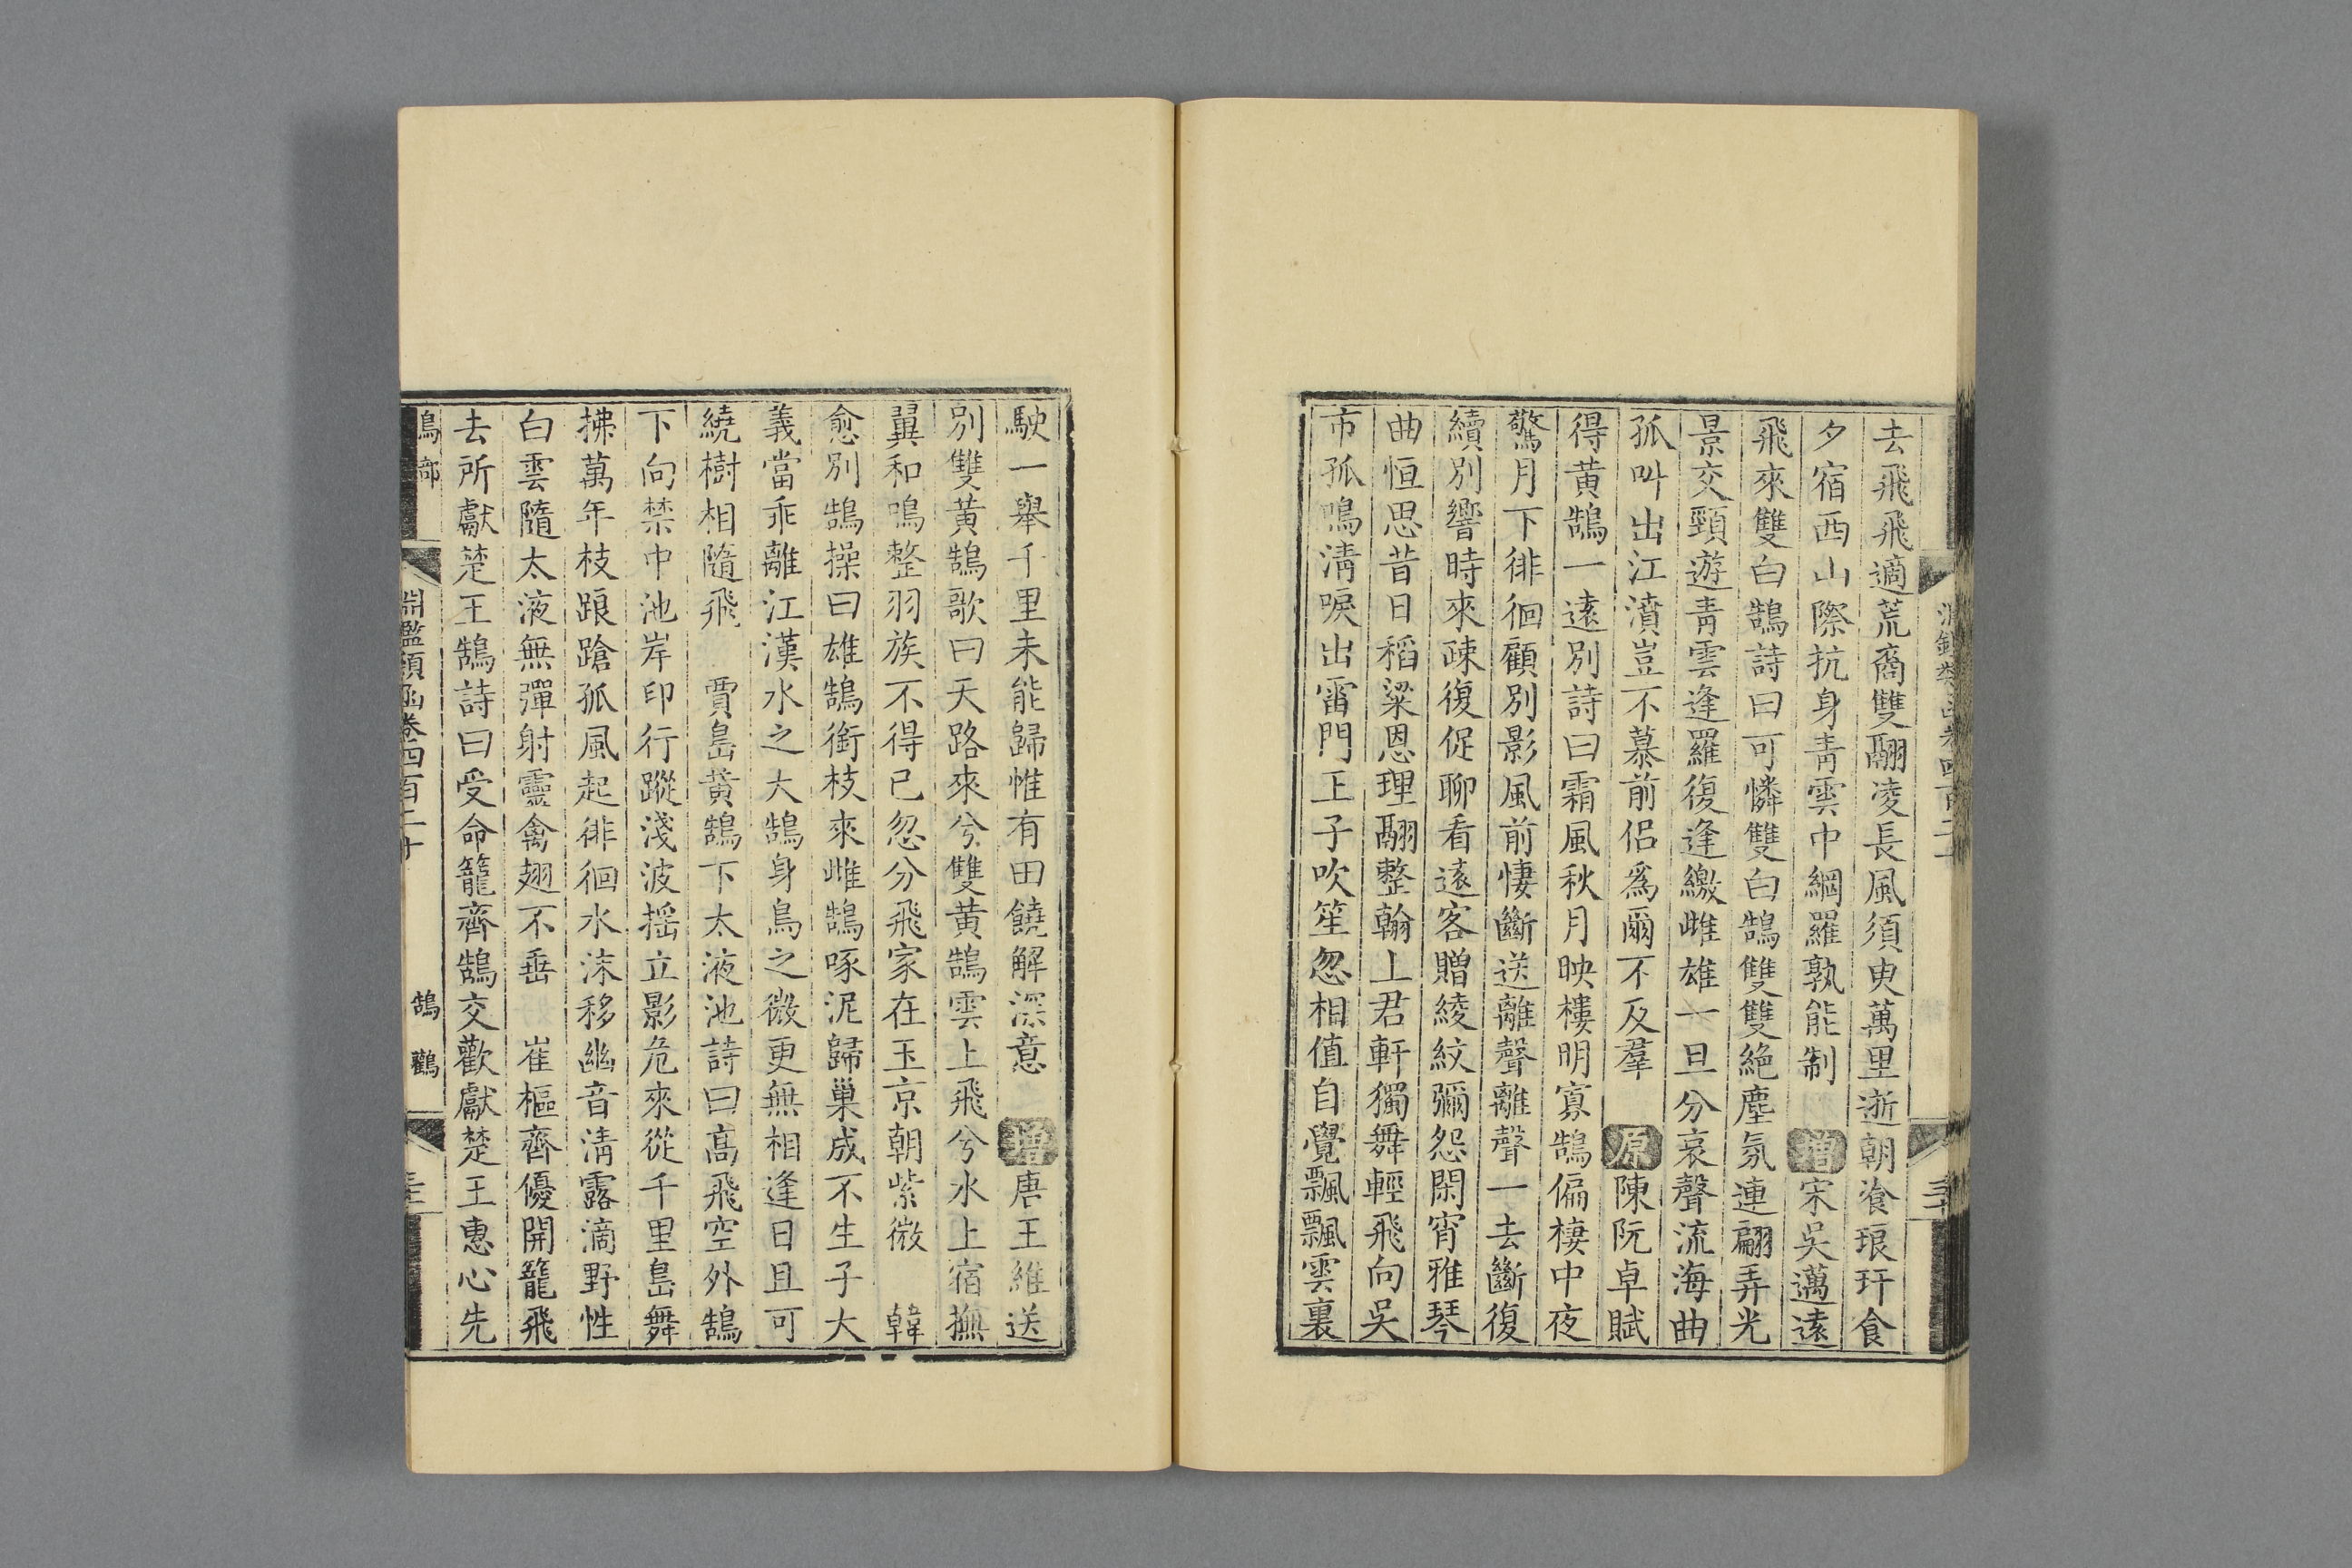 去飛飛適荒裔雙翮凌長風須臾萬里逝朝飡琅玕食
夕宿西山際抗身青雲中網羅孰能制 增宋吳邁遠
飛來雙白鵠詩曰可憐雙白鵠雙雙絶塵氛連翩弄光
景交頸遊青雲逢羅復逢繳雌雄一旦分哀聲流海曲
孤叫出江濆豈不慕前侶爲爾不及羣 原陳阮卓賦
得黃鵠一遠別詩曰霜風秋月映樓明寡鵠偏棲中夜
驚月下徘徊顧別影風前悽斷送離聲離聲一去斷復
續別響時來疎復促聊看遠客贈綾紋彌怨閑宵雅琴
曲恒思昔日稻粱恩理翮整翰上君軒獨舞輕飛向吳
市孤鳴淸唳出雷門王子吹笙忽相值自覺飄飄雲裏
駛一舉千里未能歸惟有田饒解深意 增唐王維送
別雙黃鵠歌曰天路來兮雙黃鵠雲上飛兮水上宿撫
翼和鳴整羽族不得已忽分飛家在玉京朝紫微 韓
愈別鵠操曰雄鵠銜枝來雌鵠啄泥歸巢成不生子大
義當乖離江漢水之大鵠身鳥之微更無相逢日且可
繞樹相隨飛 賈島黃鵠下太液池詩曰高飛空外鵠
下向禁中池岸印行蹤淺波摇立影危來從千里島舞
拂萬年枝踉蹌孤風起徘徊水沫移幽音淸露滴野性
白雲隨太液無彈射靈禽翅不垂 崔樞齊優開籠飛
去所獻楚王鵠詩曰受命籠齊鵠交歡獻楚王惠心先
鳥部 淵鑑類函卷四百二十 鵠 鸛